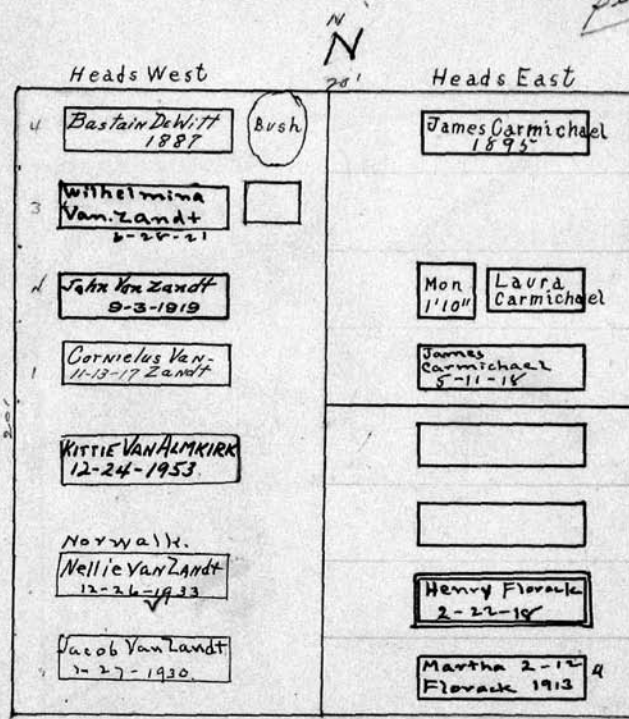 N
N
20'
Heads West
4
Bastain DeWitt
1887
Bush
3
Wilhelmina
Van. Zandt
6-28-21
John Van Zandt
9-3-1919
1
Cornielus Van-
11-13-17 Zandt
20'
KITTIE VAN ALMKIRK
12-24-1953.
Norwalk.
Nellie Van Zandt
12-26-1933
Jacob Van Zandt
27-1930.
Heads East
James Carmichael
1895
Mon
1'10"
Laura
Carmichael
James
Carmichael
5-11-18
Henry Florack
2-22-18
Martha 2-12
Florack 1913